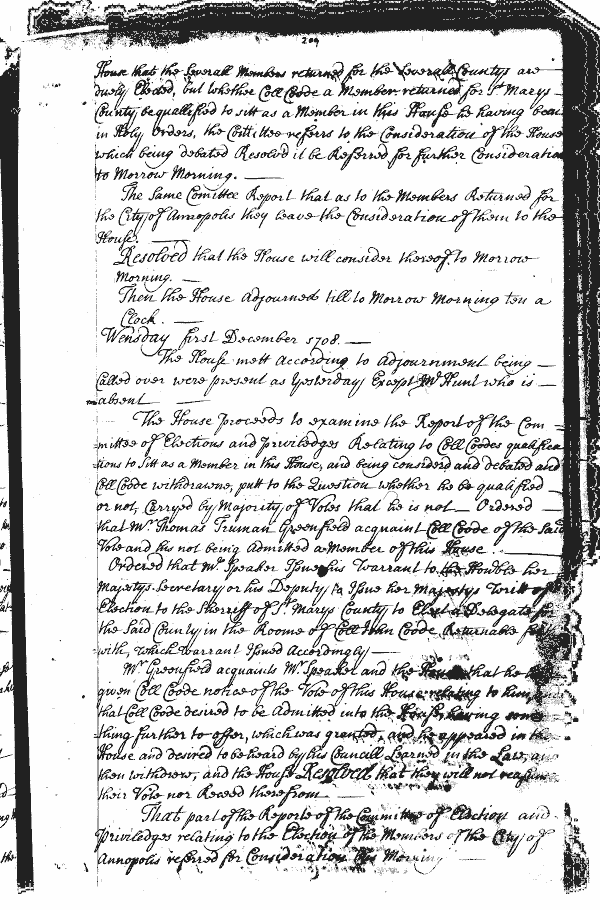 209
House that the Severall Members returned for the Severall Countys are
duely Elected, but whether Coll Coode a Member returned for St Marys
County be qualified to sitt as a Member in this House he having been
in Holy Orders, the Comittee referrs to the Consideration of the House
which being debated Resolvd it be Referred for further Consideration
to Morrow Morning.
The Same Comittee Report that as to the Members Returned for
the City of Annopolis they leave the Consideration of them to the
House.
Resolved that the House will consider thereof to Morrow
Morning.
Then the House Adjourned till to Morrow Morning ten a
Clock.
Wensday first December 1708.
The House mett According to Adjournment being
Called over were present as Yesterday Except Mr Hunt who is
absent
The House proceeds to examine the Report of the Com
mittee of Elections and priviledges Relating to Coll Codes qualifica
tions to Sitt as a Member in this House, and being considerd and debated and
Coll Code withdrawne, putt to the Question whether he be qualified
or not, Carryed by Majority of Votes that he is not Ordered
that Mr Thomas Truman Greenfield acquaint Coll Code of the Said
Vote and his not being Admitted a Member of this House.
Ordered that Mr Speaker Issue his Warrant to the Honble her
Majestys Secretary or his Deputy to Issue her Majestys Writt of
Election to the Sherriff of St. Marys County to Elect a Delegate for
the Said County in the Roome of Coll John Coode Returnable
with, which warrant Issued Accordingly
Mr Greenfield acquaints Mr Speaker and the House that he
given Coll Code notice of the Vote of this House relating to him,
that Coll Code desired to be Admitted into the House, having some
thing further to offer, which was granted, and he appeared in the
House and desired to be heard by his Councill Learned in the Law, and
then withdrew, and the House Resolved that they will not reassume
their Vote nor Receed therefrom
That part of the Reporte of the Committee of Election and
Priviledges relating to the Election of the Members of the City of
Annopolis referred for Consideration this Morning